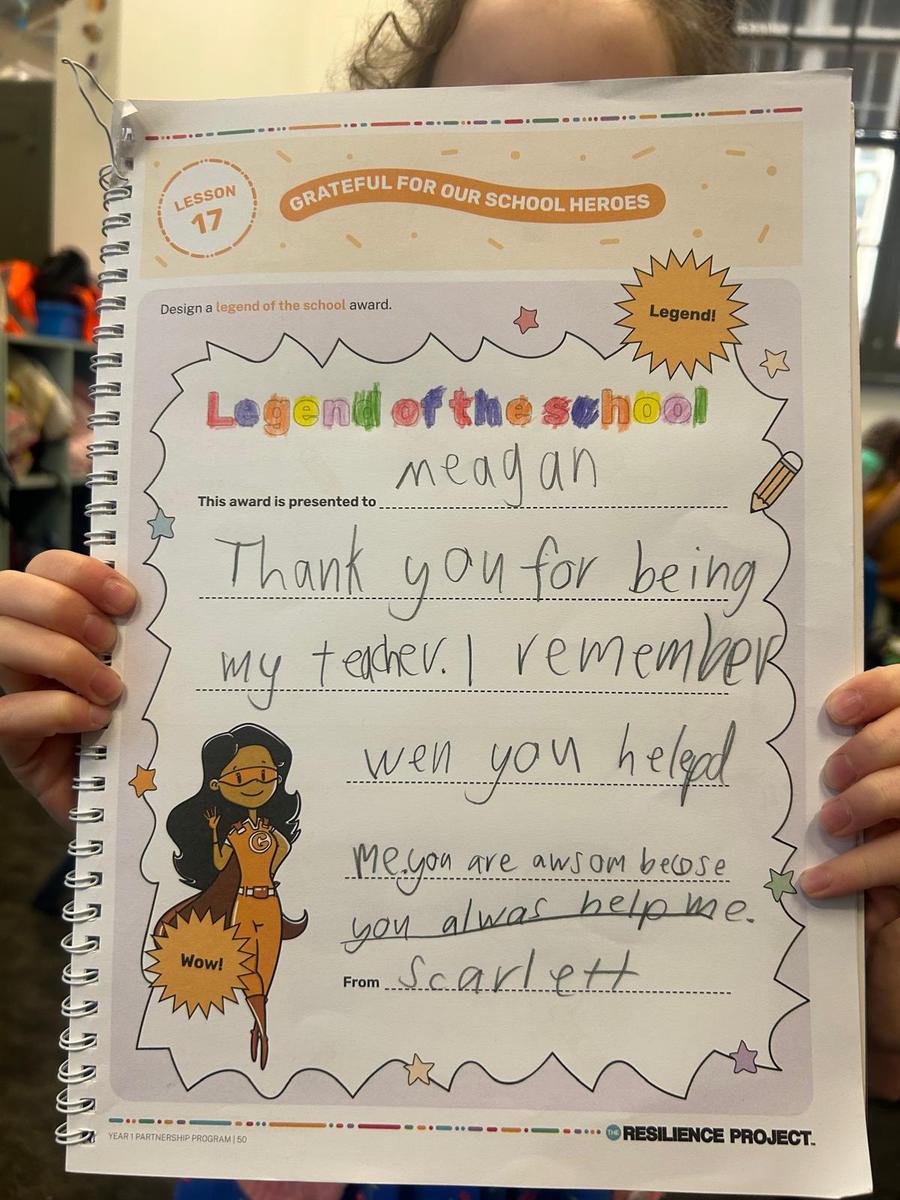 LESSON
17
GRATEFUL FOR OUR SCHOOL HEROES
Design a legend of the school award.
Legend!
Legend of the school
meagan
This award is presented to
Thank you for being
my teacher. I remember
wen you helepd
me. you are awsom becose
you alwas help me.
Wow!
From Scarlett
YEAR 1 PARTNERSHIP PROGRAM | 50
THE RESILIENCE PROJECT